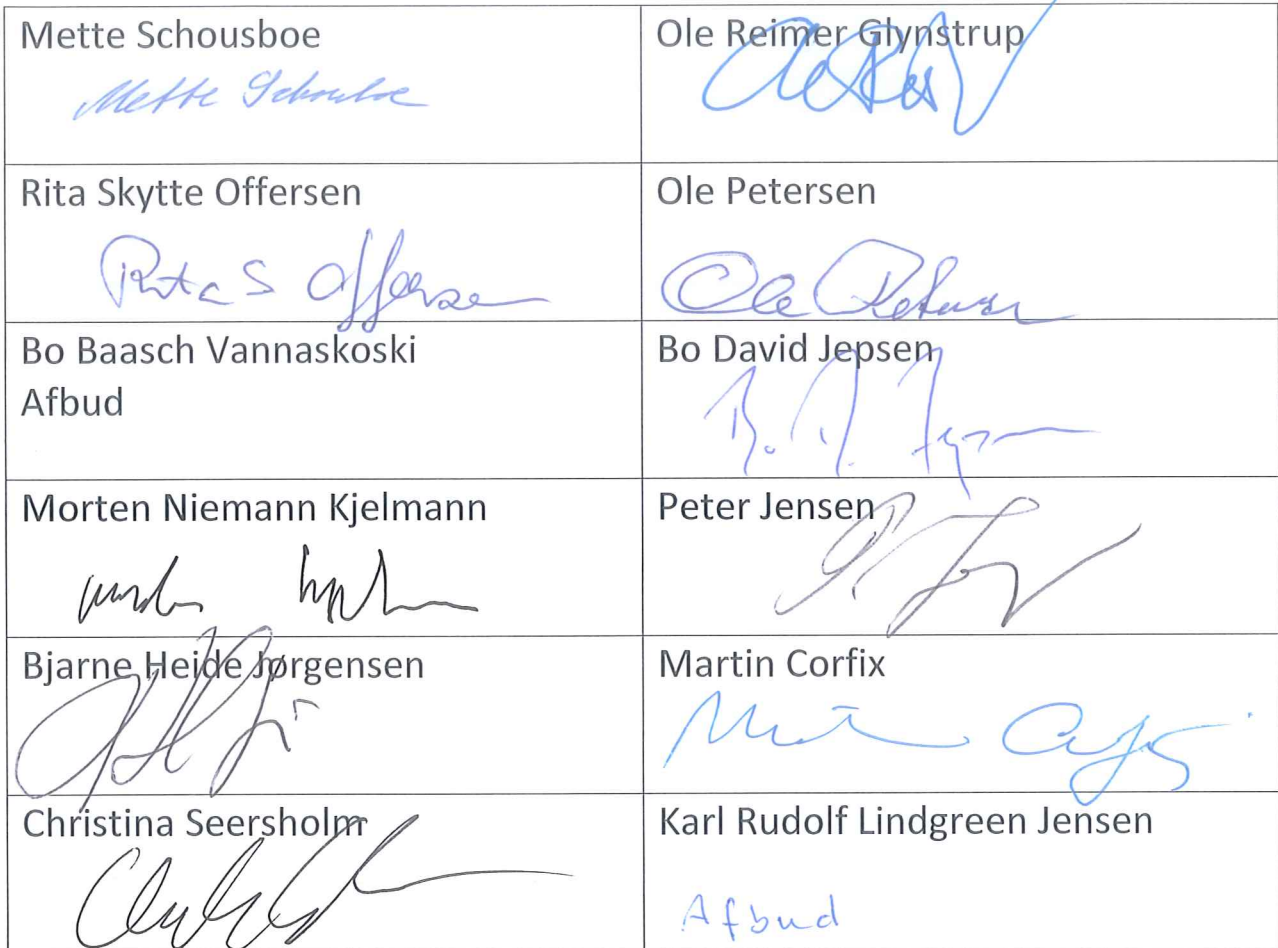 Mette Schousboe
Mette Schousboe
Ole Reimer Glynstrup
Rita Skytte Offersen
Rita S Offersen
Ole Petersen
Ole Petersen
Bo Baasch Vannaskoski
Afbud
Bo David Jepsen
Morten Niemann Kjelmann
Peter Jensen
Bjarne Heide Jørgensen
Martin Corfix
Christina Seersholm
Karl Rudolf Lindgreen Jensen
Afbud